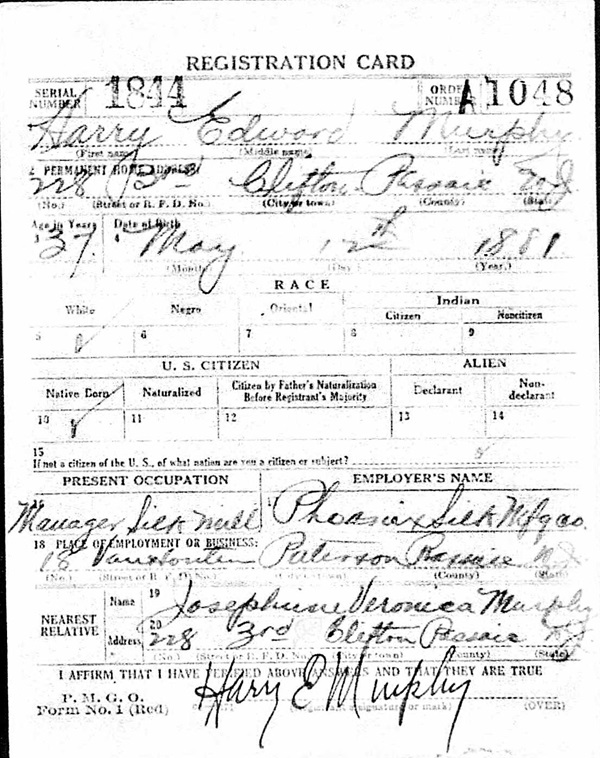 REGISTRATION CARD
SERIAL NUMBER 1844 ORDER NUMBER A1048
1 Harry Edward Murphy
(First name) (Middle name) (Last name)
2 PERMANENT HOME ADDRESS:
228 Clifton Passaic N.J.
(No.) (Street or R. F. D. No.) (City or town) (County) (State)
Age in Years Date of Birth
3 37 4 May 12th 1881
(Month) (Day) (Year.)
RACE
White Negro Oriental Indian
Citizen Noncitizen
5 6 7 8 9
U. S. CITIZEN ALIEN
Native Born Naturalized Citizen by Father's Naturalization Before Registrant's Majority Declarant Non-declarant
10 11 12 13 14
15
If not a citizen of the U. S., of what nation are you a citizen or subject?
PRESENT OCCUPATION EMPLOYER'S NAME
Manager Silk Mill Phoenix Silk Mfg Co.
18 PLACE OF EMPLOYMENT OR BUSINESS:
18 Vanhouten Paterson Passaic N.J.
(No.) (Street or R. F. D. No.) (City or town) (County) (State)
NEAREST RELATIVE
Name 19 Josephine Veronica Murphy
Address 20 228 3rd Clifton Passaic N.J.
(No.) (Street or R. F. D. No.) (City or town) (County) (State)
I AFFIRM THAT I HAVE VERIFIED ABOVE ANSWERS AND THAT THEY ARE TRUE
P. M. G. O.
Form No. 1 (Red) Harry E Murphy
(Registrant's signature or mark) (OVER)